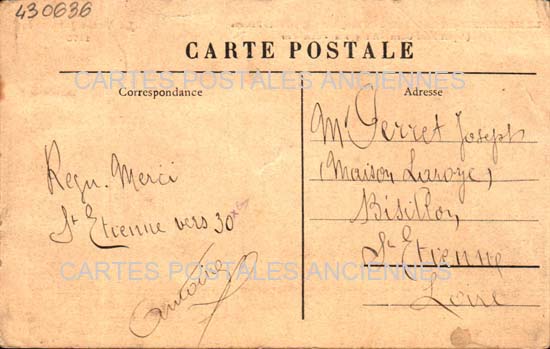 430636
CARTE POSTALE
CARTES POSTALES ANCIENNES
Correspondance
Regu. Merci
St Etienne vers 30
Antoine
Adresse
Mr Perret Joseph
(Maison Laroye)
St Etienne
Loire
CARTES POSTALES ANCIENNES